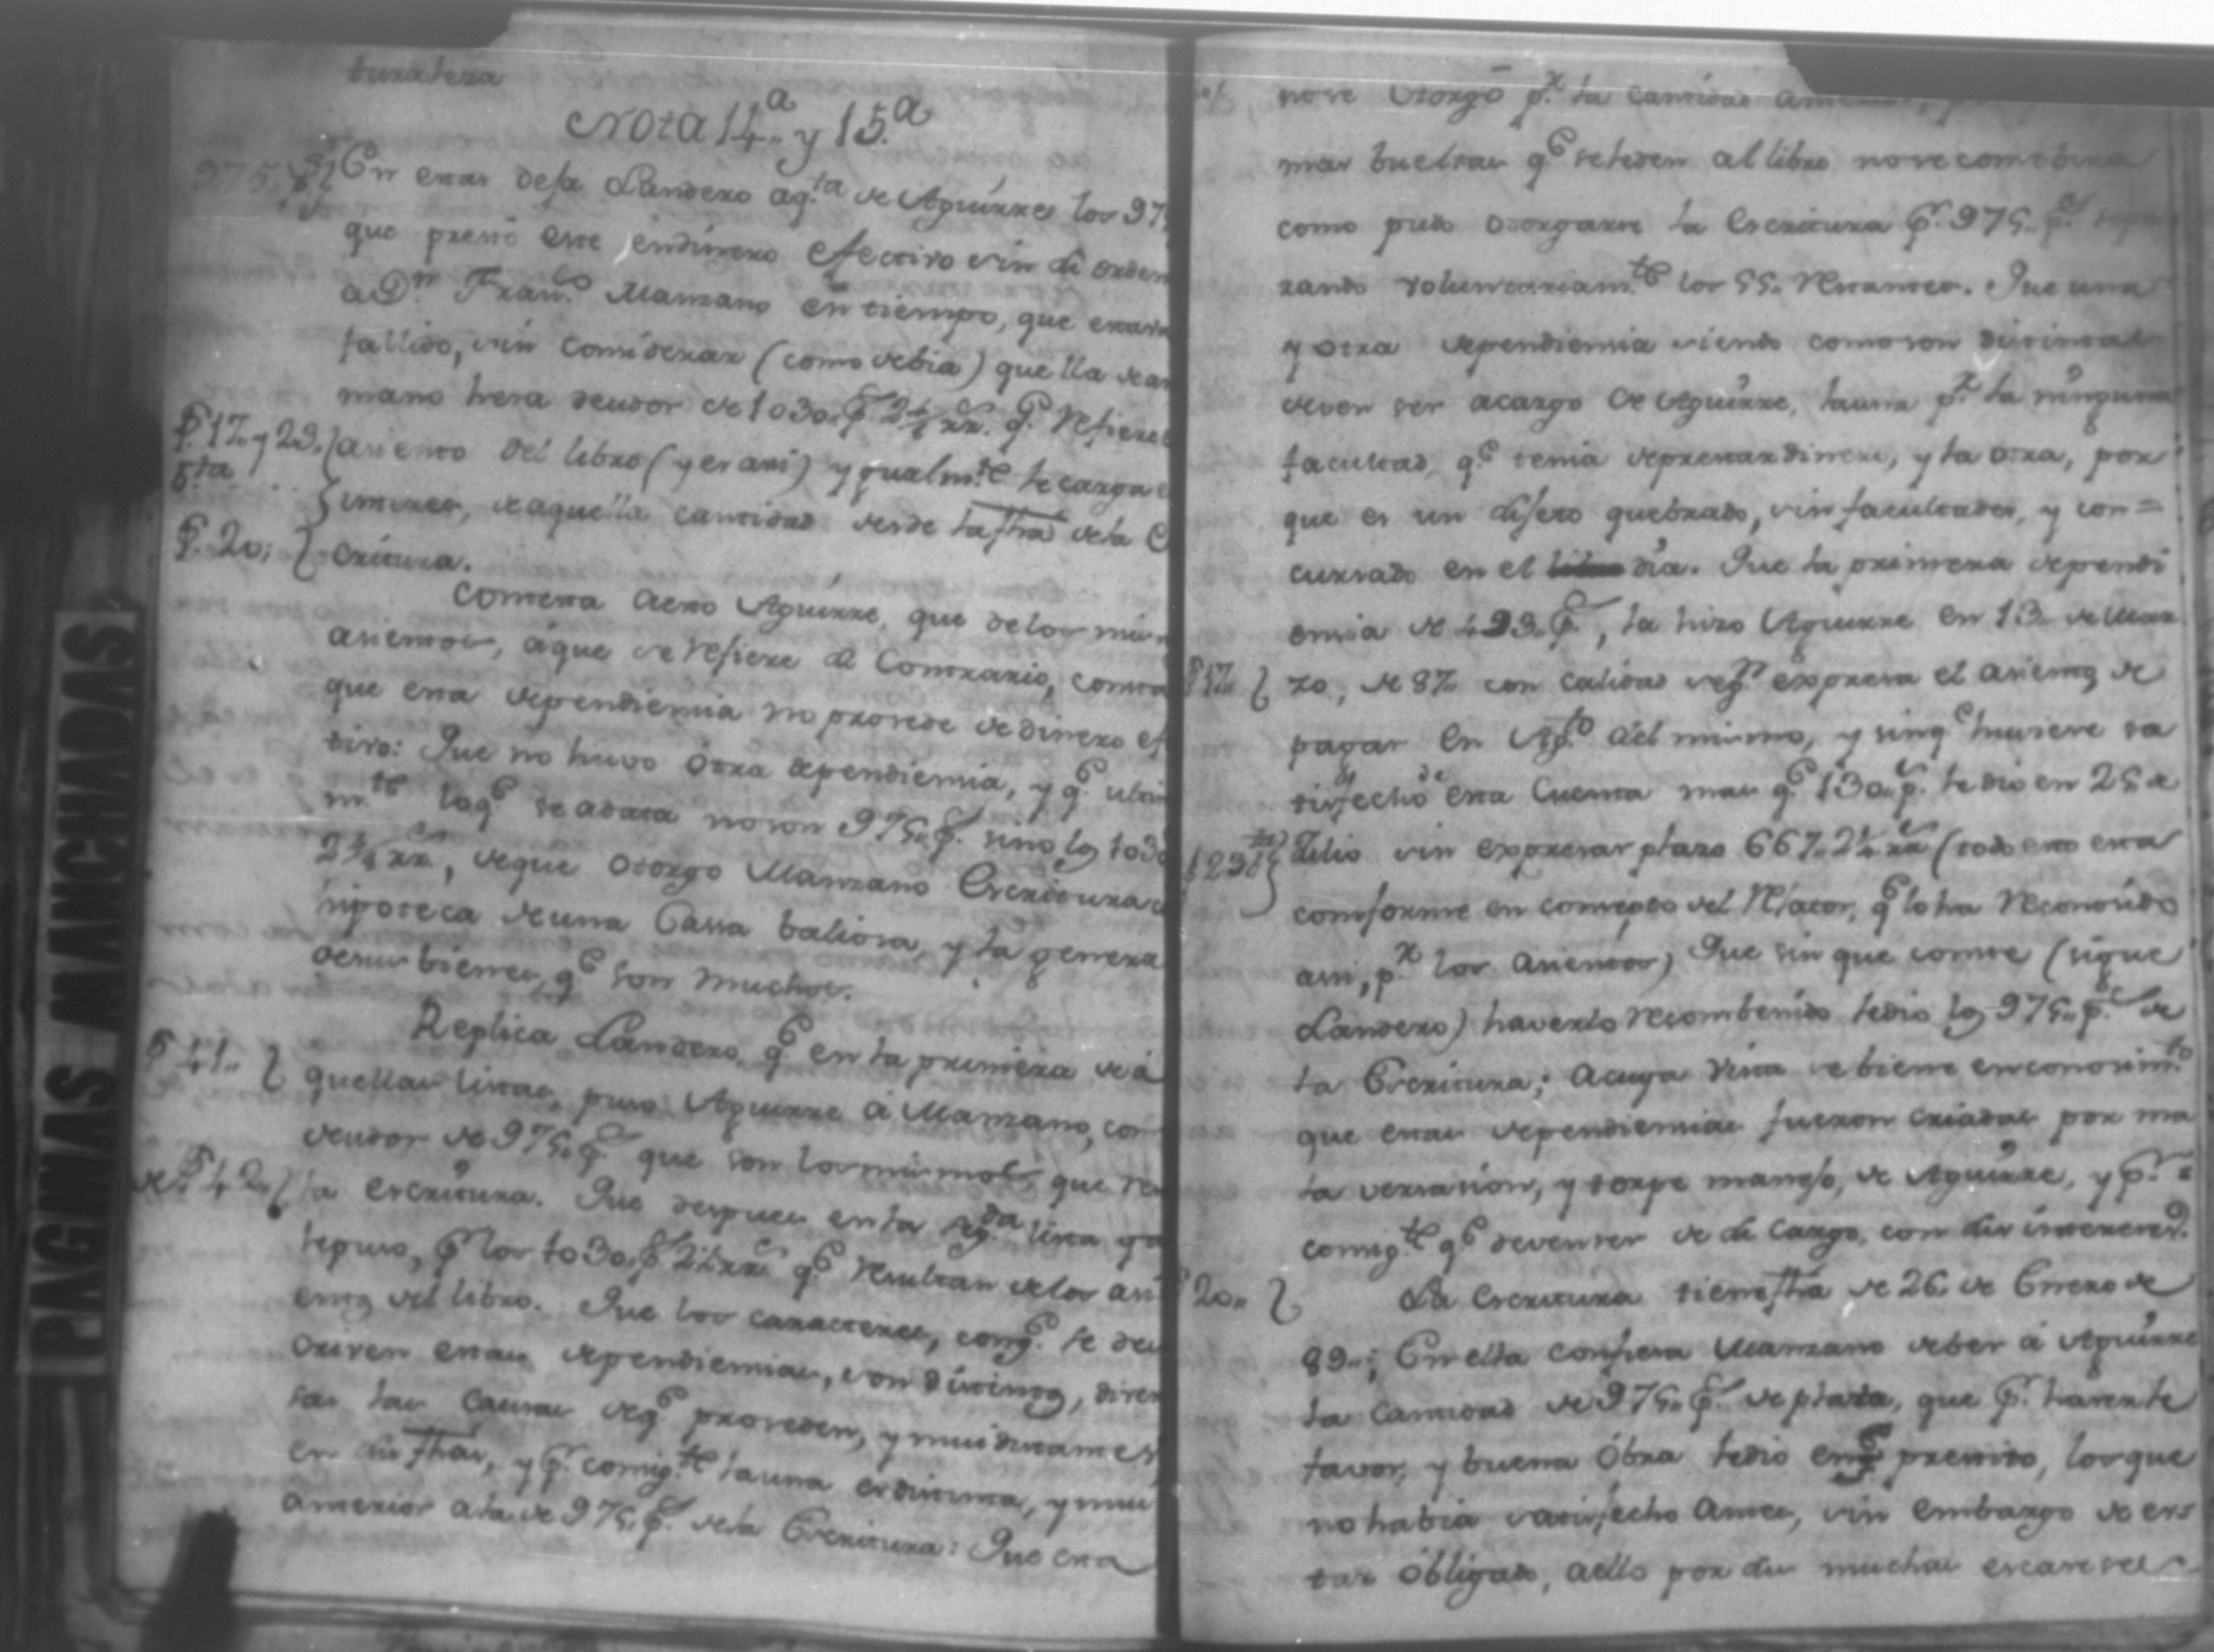 turaleza
Nota 14.ª y 15.ª
975 p.s En estas dexa Landero aq.ta de Aguirre los 97
que prestó este en dinero efectivo sin su orden
a D.n Fran.co Manzano en tiempo, que estava
fallido, sin considerar (como debia) que ya de an
mano hera deudor de 1030 p.s 2¼ rr.s q.e refiere
f. 17. y 23. asiento del libro (y es asi) ygualm.te le carga
5.ta interes, de aquella cantidad desde la fha de la E
f. 20. critura.
Contesta a esto Aguirre, que de los mism
asientos, á que se refiere su Contrario, consta
que esta dependiencia no procede de dinero ef
tivo: Que no huvo otra dependiencia, y q.e ultim
m.te lo q.e se adata no son 975 p.s sino los 1030
2¼ rr.s, de que otorgo Manzano Escritura
hipoteca de una Cassa baliosa, y la genera
de sus bienes, q.e son muchos.
Replica Landero, q.e en la primera de á
f 41.. quellas listas, puso Aguirre á Manzano, co
deudor de 975. p.s que son los mismos, que re
f 42. la escritura. Que despues en la seg.da lista ya
le puso, p.r los 1030. p.s 2¼ rr.s q.e resultan de los asi
entos del libro. Que los caracteres, con q.e se des
criven estas dependiencias, son distintos, diver
sas las causas de q.e proceden, y mui distantes
en sus fhas, y p.r consig.te la una es distinta, y mui
anterior a la de 975. p.s de la Escritura: Que esta
no se otorgó p.r la cantidad
mas bueltas q.e se le den al libro no se comtbina
como pudo otorgarse la Escritura p.r 975. p.s
rando voluntariam.te los 55. restantes. Que una
y otra dependiencia siendo como son distintas
deven ser a cargo de Aguirre, la una p.r la ninguna
facultad q.e tenia de prestar dinero, y la otra, por
que es un sugeto quebrado, sin facultades, y con=
cursado en el dia. Que la primera dependi
encia de 493. p.s, la hizo Aguirre en 13. de Mar
f 17. zo, de 87. con calidad seg.n expresa el asiento de
pagar en Ag.to del mismo, y sin q.e huviese sa
tisfecho de esta Cuenta mas q.e 130. p.s le dio en 25 de
f 23 Julio sin expresar plazo 667. 2¼ rr.s (todo esto esta
conforme en concepto del Relator, q.e lo ha reconocido
asi, p.r los asientos) Que sin que conste (sigue
Landero) haverlo recombenido le dio los 975. p.s de
la Escritura; a cuya vista se biene en conosim.to
que estas dependiencias fueron criadas por ma
la versacion, y torpe manejo, de Aguirre, y p.r
consig.te q.e deven ser de su cargo, con sus intereses.
20.. La Escritura tiene fha de 26. de Enero de
89..; En ella confiesa Manzano deber á Aguirre
la Cantidad de 975. p.s de plata, que p.r hacerle
favor, y buena obra le dio en prestito, los que
no habia satisfecho antes, sin embargo de es
tar obligado, a ello por sus muchas escaseses